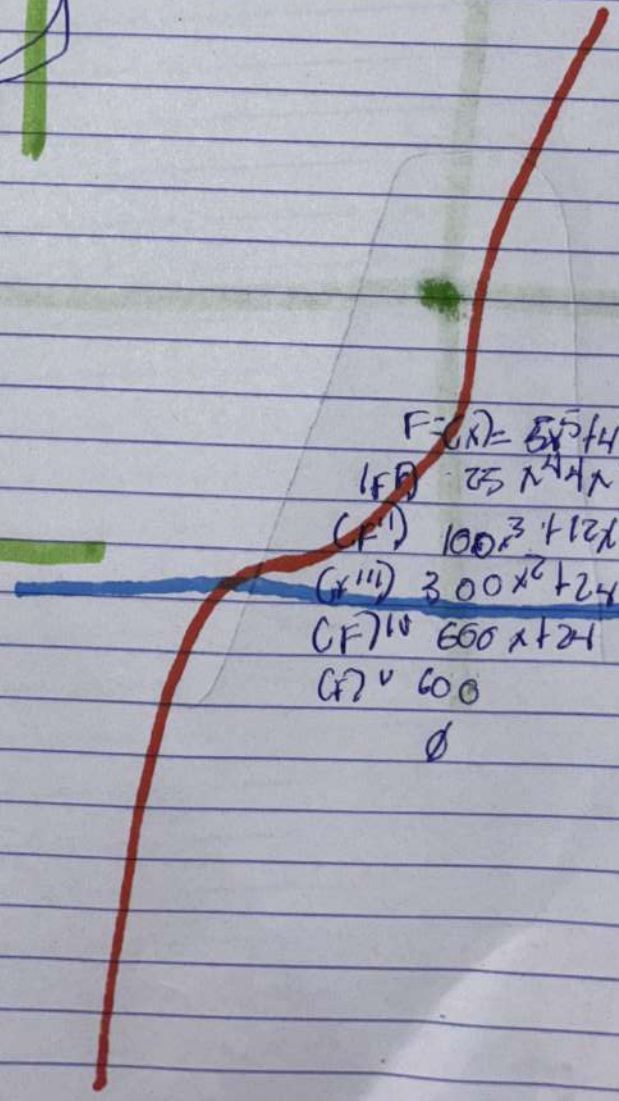 F=(x)= 5x⁵+4
(F') 25 x⁴4x
(F'') 100x³+12x
(F''') 300x²+24
(F)IV 600x+24
(F)V 600
∅